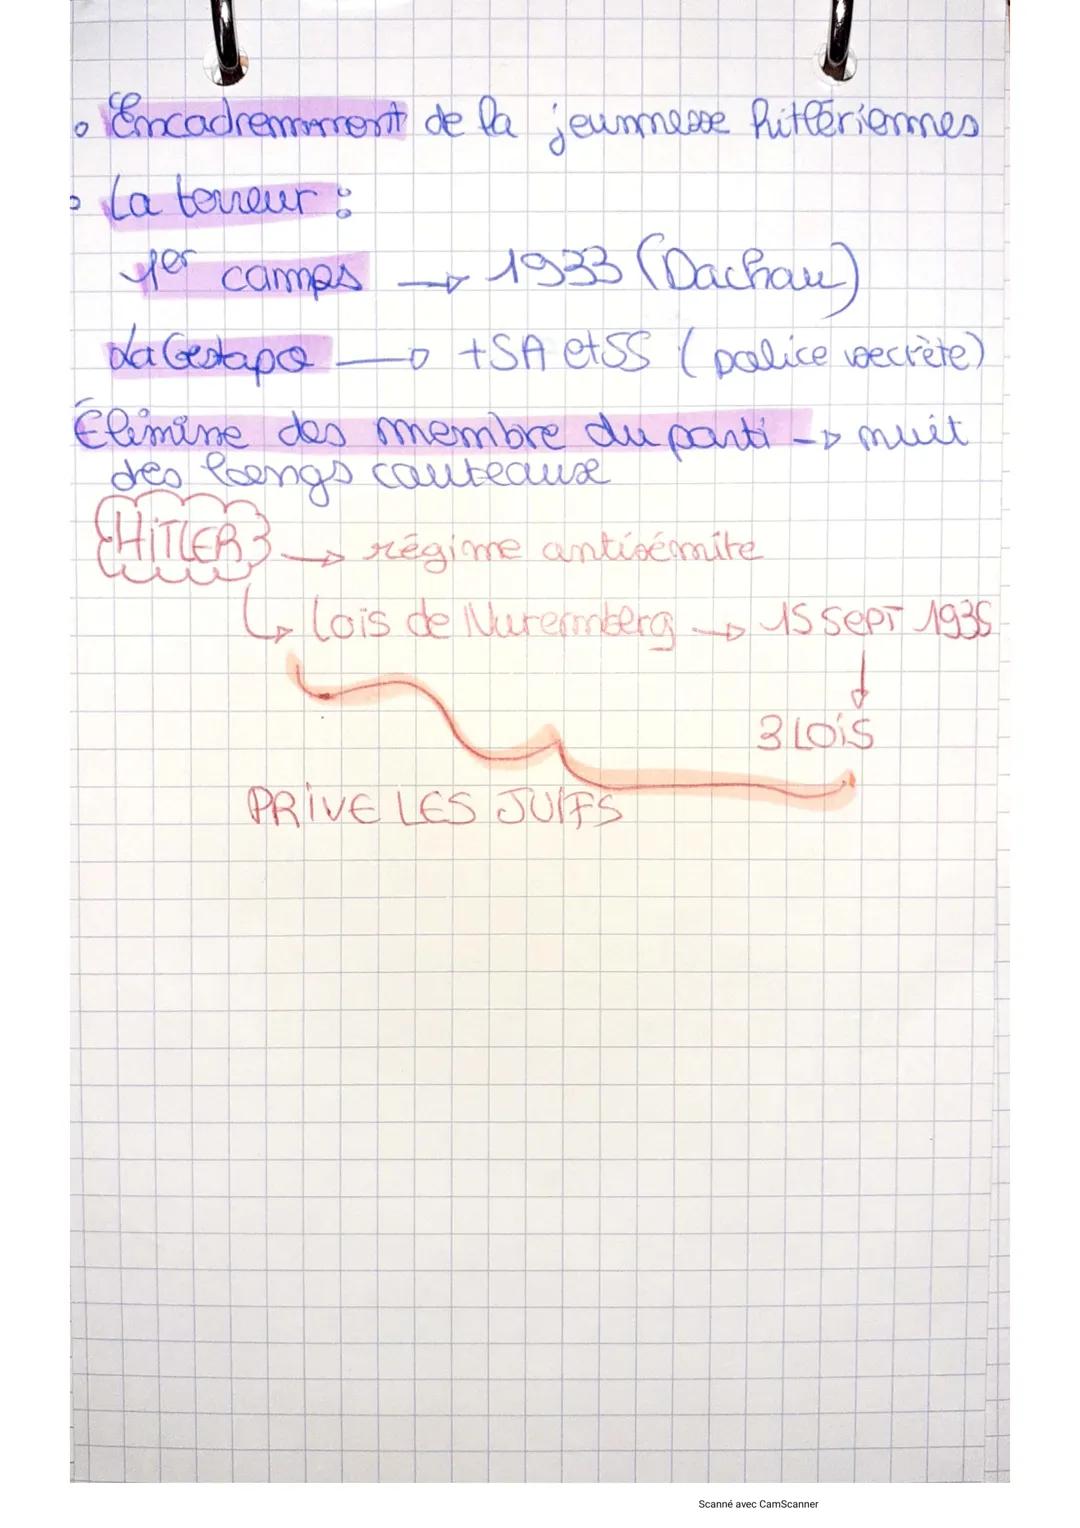 Encadrement de la jeunnesse hitlériennes
La terreur :
1er camps → 1933 (Dachau)
La Gestapo → +SA et SS (police secrète)
Élimine des membre du parti → nuit
des longs couteaux
HITLER → régime antisémite
↳ Lois de Nuremberg → 15 SEPT 1935
3 LOIS
PRIVE LES JUIFS
Scanné avec CamScanner